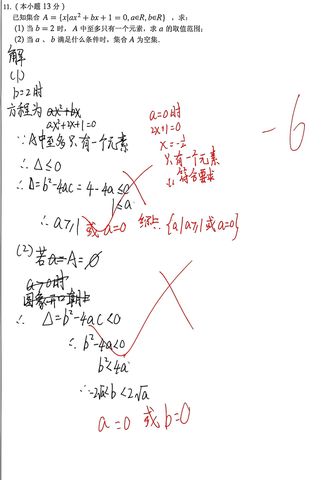 11.(本小题 13 分)
已知集合 A = {x|ax² + bx + 1 = 0, a∈R, b∈R} ，求：
(1) 当 b = 2 时，A 中至多只有一个元素，求 a 的取值范围；
(2) 当 a 、b 满足什么条件时，集合 A 为空集.
解
(1)
b=2 时
方程为 ax²+bx
ax²+2x+1=0
∵ A中至多只有一个元素
∴ Δ≤0
∴ Δ=b²-4ac=4-4a≤0
1≤a
∴ a≥1 或a=0 综上 {a|a≥1 或a=0}
a=0时
2x+1=0
x=-1/2
只有一个元素
符合要求
-6
(2) 若 A=∅
a>0时
图象开口朝上
∴ Δ=b²-4ac<0
∴ b²-4a<0
b²<4a
∴ -2√a<b<2√a
a=0 或 b=0